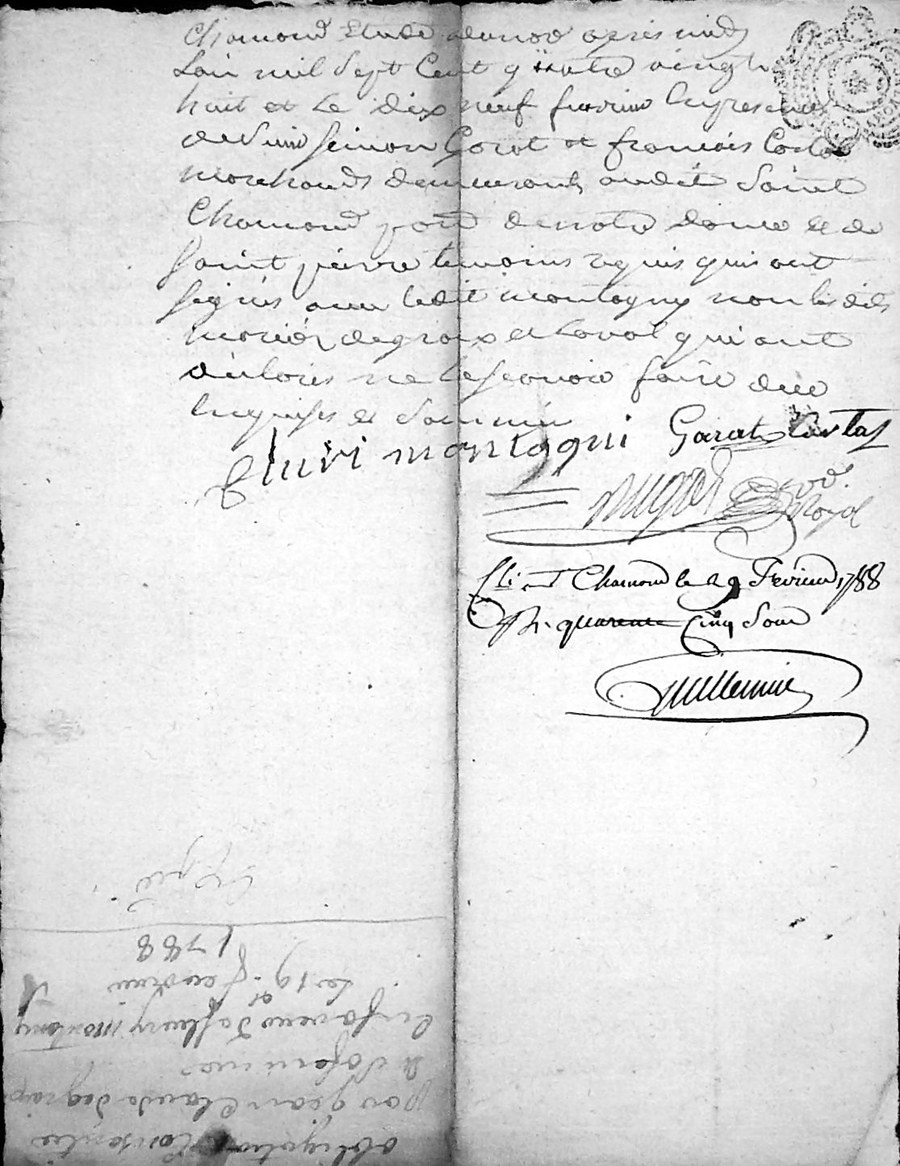 Chamond Etude du no.re après midy
Lan mil Sept Cent quatre vingt
huit et Le dix neuf fevrier En presence
de Simon Garat et francois Costas
marchands demeurants audit Saint
Chamond par.. de notre dame et de
Saint pierre temoins requis qui ont
signés avec ledit montagny non lesdits
mariés degraix et laval qui ont
déclarés ne le sçavoir faire de ce
Enquis et Sommés
fleuri montagni Garat Costas
Royal
St Chamond le 29 Fevrier 1788
R. quarante Cinq Sous
obligation Consentie
par jean Claude degraix
& Sa femme
En faveur de fleury montagny
Le 19 fevrier
1788
Expédié